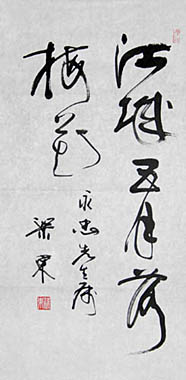 江城五月落
梅花
永忠先生属
梁东